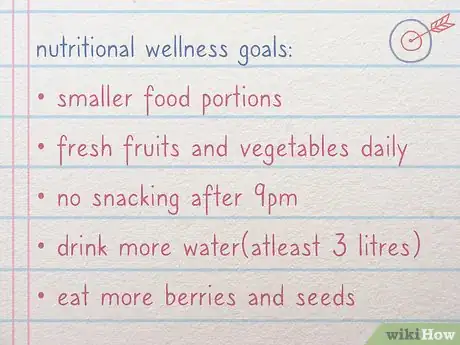 nutritional wellness goals:
• smaller food portions
• fresh fruits and vegetables daily
• no snacking after 9pm
• drink more water(atleast 3 litres)
• eat more berries and seeds
wikiHow